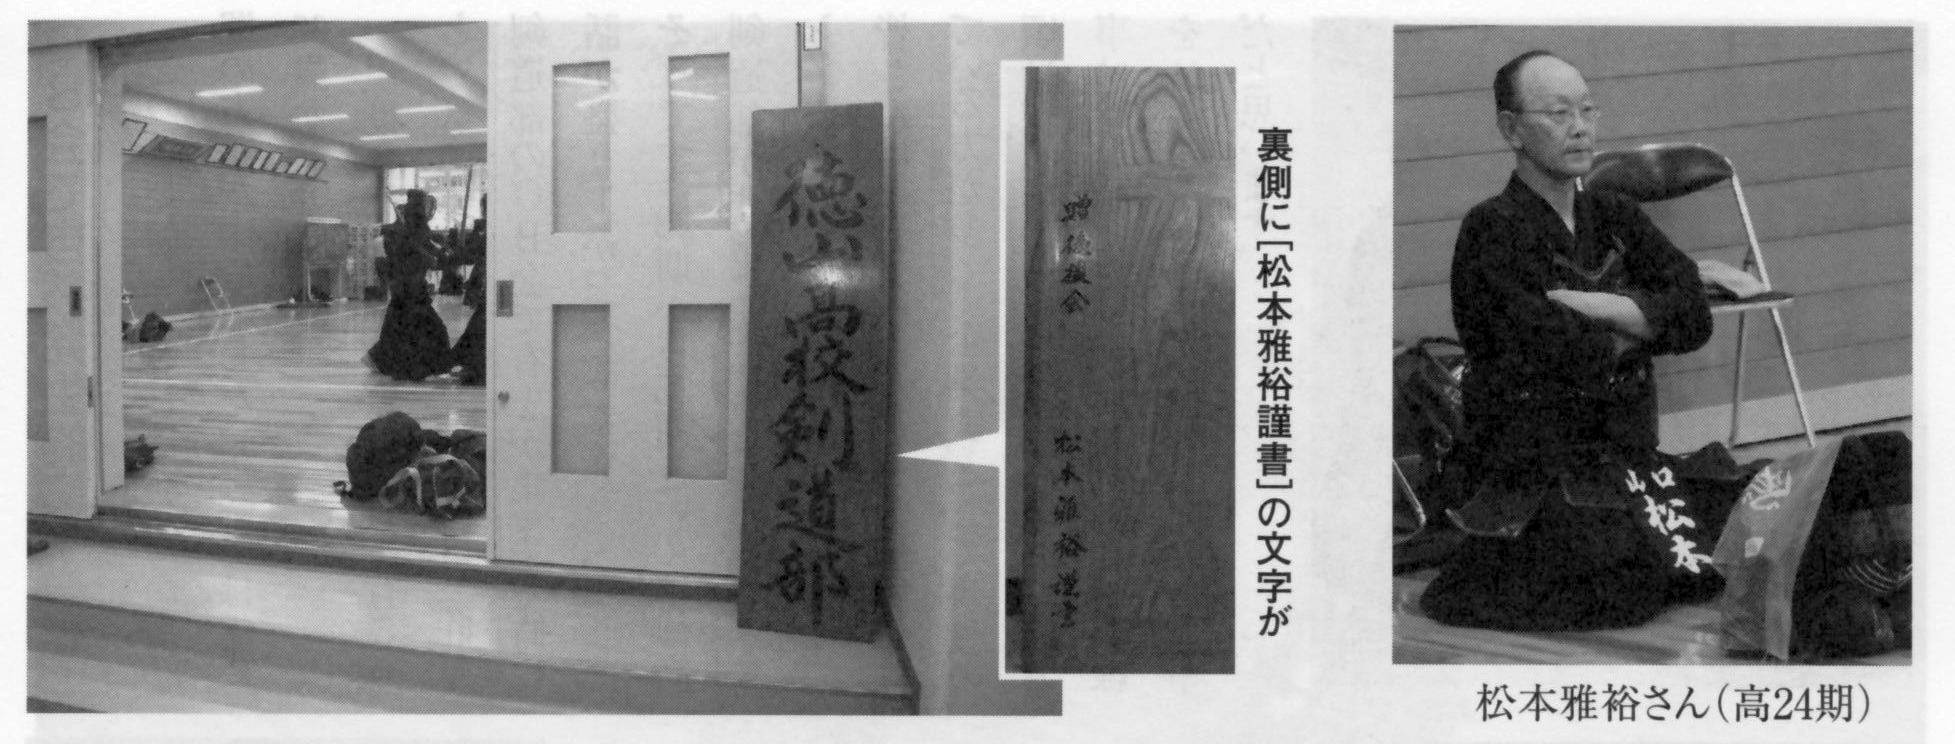 徳山高校剣道部
贈徳機会
松本雅裕謹書
裏側に［松本雅裕謹書］の文字が
山口
松本
松本雅裕さん（高24期）